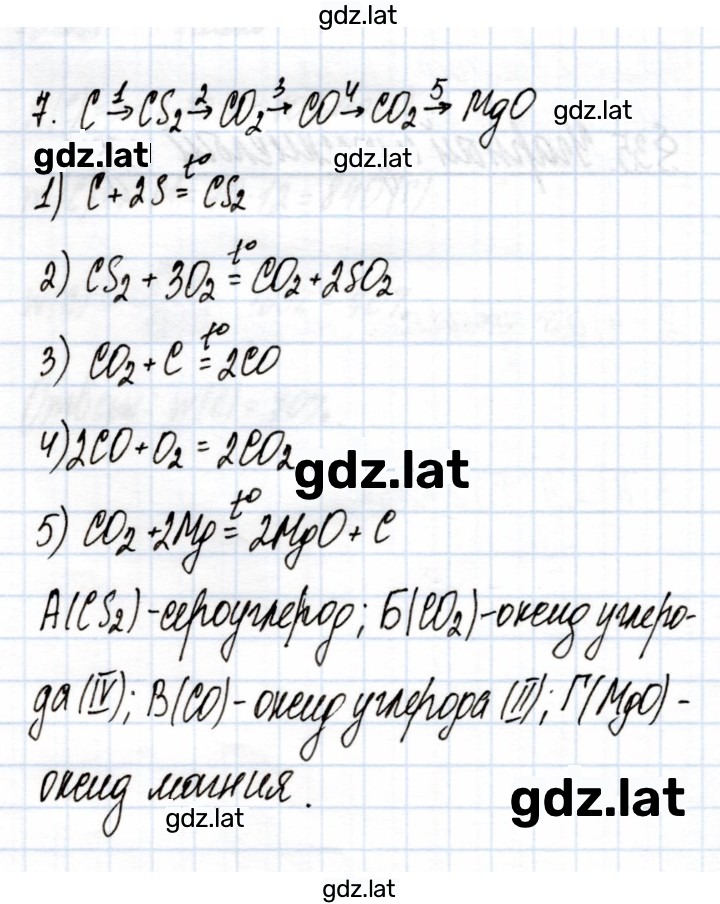 gdz.lat
7. C →1 CS₂ →2 CO₂ →3 CO →4 CO₂ →5 MgO gdz.lat
gdz.lat gdz.lat
1) C + 2S =t° CS₂
2) CS₂ + 3O₂ =t° CO₂ + 2SO₂
3) CO₂ + C =t° 2CO
4) 2CO + O₂ = 2CO₂
gdz.lat
5) CO₂ + 2Mg =t° 2MgO + C
А(CS₂) - сероуглерод; Б(CO₂) - оксид углеро-
да (IV); В(CO) - оксид углерода (II); Г(MgO) -
оксид магния.
gdz.lat gdz.lat
gdz.lat